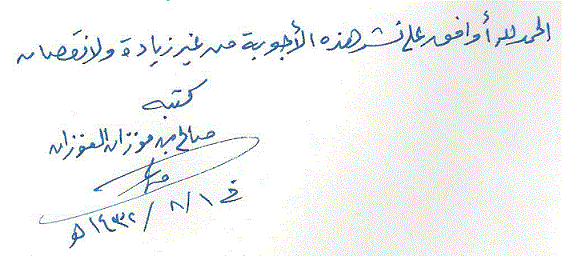 الحمد لله أوافق على نشر هذه الأجوبة من غير زيادة ولا نقصان
كتبه
صالح بن فوزان الفوزان
في ١ / ٨ / ١٤٣٢هـ